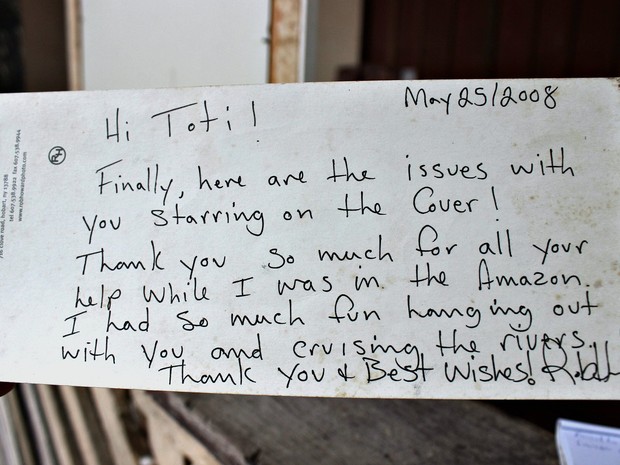 May 25/2008
Hi Toti!
Finally, here are the issues with
you starring on the Cover!
Thank you so much for all your
help while I was in the Amazon.
I had so much fun hanging out
with you and cruising the rivers.
Thank you & Best Wishes!
RH
hobart, ny 13788
fax 607.538.9944